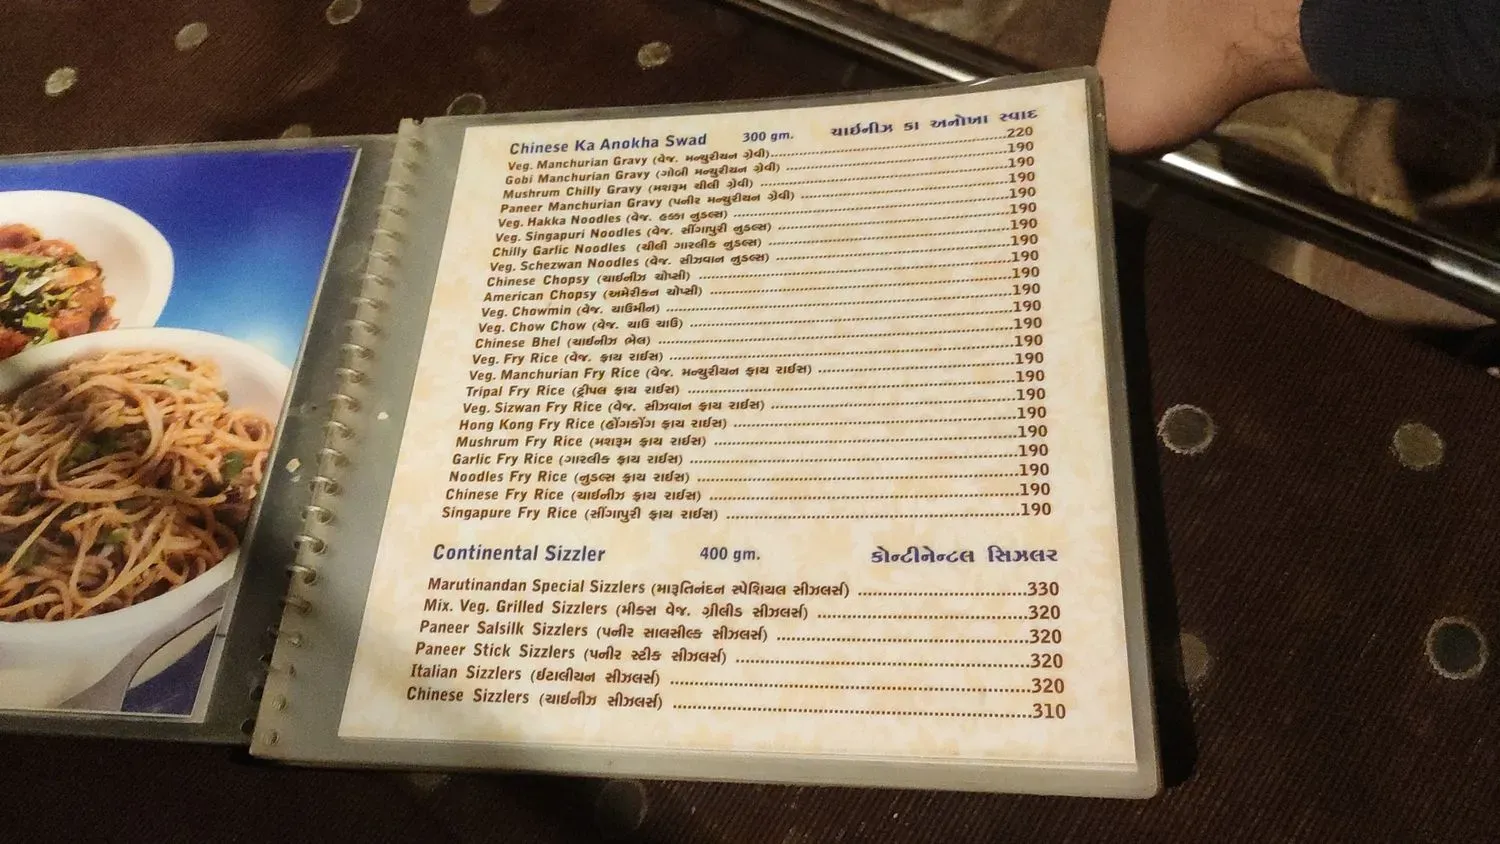 Chinese Ka Anokha Swad 300 gm. ચાઈનીઝ કા અનોખા સ્વાદ
Veg. Manchurian Gravy (વેજ. મન્ચુરીયન ગ્રેવી) 220
Gobi Manchurian Gravy (ગોબી મન્ચુરીયન ગ્રેવી) 190
Mushrum Chilly Gravy (મશરૂમ ચીલી ગ્રેવી) 190
Paneer Manchurian Gravy (પનીર મન્ચુરીયન ગ્રેવી) 190
Veg. Hakka Noodles (વેજ. હક્કા નુડલ્સ) 190
Veg. Singapuri Noodles (વેજ. સીંગાપુરી નુડલ્સ) 190
Chilly Garlic Noodles (ચીલી ગારલીક નુડલ્સ) 190
Veg. Schezwan Noodles (વેજ. સીઝવાન નુડલ્સ) 190
Chinese Chopsy (ચાઈનીઝ ચોપ્સી) 190
American Chopsy (અમેરીકન ચોપ્સી) 190
Veg. Chowmin (વેજ. ચાઉમીન) 190
Veg. Chow Chow (વેજ. ચાઉ ચાઉ) 190
Chinese Bhel (ચાઈનીઝ ભેલ) 190
Veg. Fry Rice (વેજ. ફ્રાય રાઈસ) 190
Veg. Manchurian Fry Rice (વેજ. મન્ચુરીયન ફ્રાય રાઈસ) 190
Tripal Fry Rice (ટ્રીપલ ફ્રાય રાઈસ) 190
Veg. Sizwan Fry Rice (વેજ. સીઝવાન ફ્રાય રાઈસ) 190
Hong Kong Fry Rice (હોંગકોંગ ફ્રાય રાઈસ) 190
Mushrum Fry Rice (મશરૂમ ફ્રાય રાઈસ) 190
Garlic Fry Rice (ગારલીક ફ્રાય રાઈસ) 190
Noodles Fry Rice (નુડલ્સ ફ્રાય રાઈસ) 190
Chinese Fry Rice (ચાઈનીઝ ફ્રાય રાઈસ) 190
Singapure Fry Rice (સીંગાપુરી ફ્રાય રાઈસ) 190
Continental Sizzler 400 gm. કોન્ટીનેન્ટલ સિઝલર
Marutinandan Special Sizzlers (મારૂતિનંદન સ્પેશિયલ સીઝલર્સ) 330
Mix. Veg. Grilled Sizzlers (મીક્સ વેજ. ગ્રીલીડ સીઝલર્સ) 320
Paneer Salsilk Sizzlers (પનીર સાલસીલ્ક સીઝલર્સ) 320
Paneer Stick Sizzlers (પનીર સ્ટીક સીઝલર્સ) 320
Italian Sizzlers (ઈટાલીયન સીઝલર્સ) 320
Chinese Sizzlers (ચાઈનીઝ સીઝલર્સ) 310